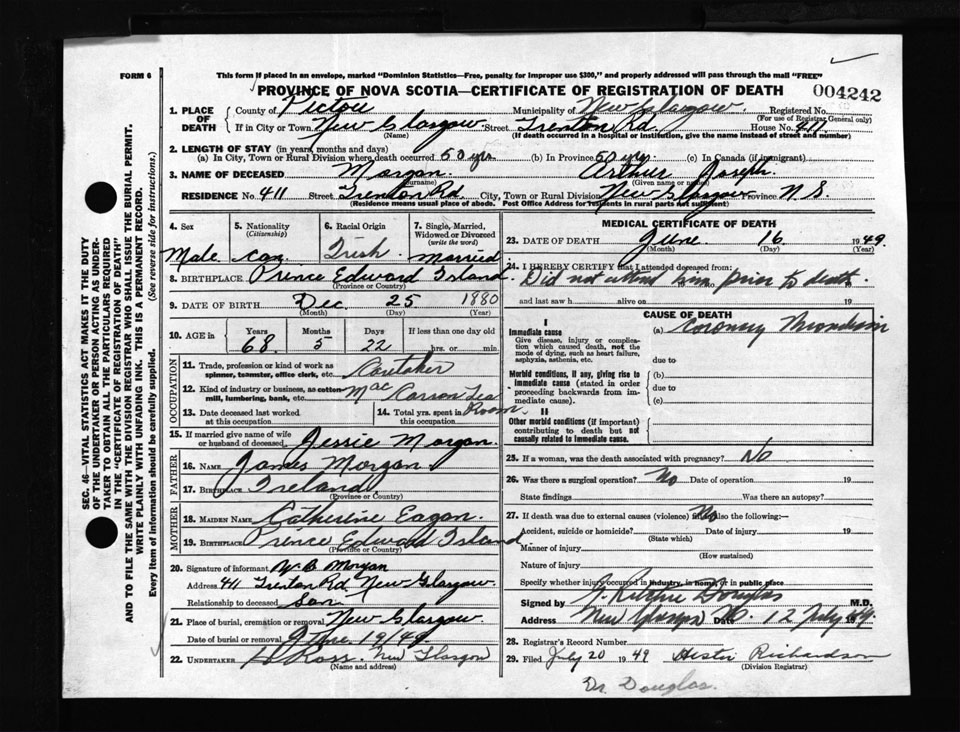 FORM 6
This form if placed in an envelope, marked "Dominion Statistics—Free, penalty for improper use $300," and properly addressed will pass through the mail "FREE"
PROVINCE OF NOVA SCOTIA—CERTIFICATE OF REGISTRATION OF DEATH
004242
SEC. 46—VITAL STATISTICS ACT MAKES IT THE DUTY
OF THE UNDERTAKER OR PERSON ACTING AS UNDER-
TAKER TO OBTAIN ALL THE PARTICULARS REQUIRED
IN THE "CERTIFICATE OF REGISTRATION OF DEATH"
AND TO FILE THE SAME WITH THE DIVISION REGISTRAR WHO SHALL ISSUE THE BURIAL PERMIT.
WRITE PLAINLY WITH UNFADING INK. THIS IS A PERMANENT RECORD.
Every item of information should be carefully supplied. (See reverse side for instructions.)
1. PLACE OF DEATH
County of Pictou Municipality of New Glasgow Registered No.
(For use of Registrar General only)
If in City or Town New Glasgow Street Trenton Rd. House No. 411
(Name) (If death occurred in a hospital or institution, give the name instead of street and number)
2. LENGTH OF STAY (in years, months and days)
(a) In City, Town or Rural Division where death occurred 50 yrs (b) In Province 50 yrs (c) In Canada (if immigrant)
3. NAME OF DECEASED Morgan. Arthur Joseph.
(Surname) (Given name or names)
RESIDENCE No. 411 Street Trenton Rd. City, Town or Rural Division New Glasgow Province N.S.
(Residence means usual place of abode. Post Office Address for residents in rural parts not sufficient)
4. Sex Male
5. Nationality (Citizenship) Can
6. Racial Origin Irish
7. Single, Married, Widowed or Divorced (write the word) Married
8. BIRTHPLACE Prince Edward Island
(Province or Country)
9. DATE OF BIRTH Dec 25 1880
(Month) (Day) (Year)
10. AGE in Years 68 Months 5 Days 22 If less than one day old hrs. or min.
OCCUPATION
11. Trade, profession or kind of work as spinner, teamster, office clerk, etc. Caretaker
12. Kind of industry or business, as cotton mill, lumbering, bank, etc. Mac Carron Tea Room
13. Date deceased last worked at this occupation
14. Total yrs. spent in this occupation
15. If married give name of wife or husband of deceased Jessie Morgan.
FATHER
16. NAME James Morgan.
17. BIRTHPLACE Ireland
(Province or Country)
MOTHER
18. MAIDEN NAME Catherine Eagan.
19. BIRTHPLACE Prince Edward Island
(Province or Country)
20. Signature of informant W. B Morgan
Address 411 Trenton Rd. New Glasgow
Relationship to deceased Son
21. Place of burial, cremation or removal New Glasgow
Date of burial or removal 19/49
22. UNDERTAKER H Ross. New Glasgow
(Name and address)
MEDICAL CERTIFICATE OF DEATH
23. DATE OF DEATH June 16 1949.
(Month) (Day) (Year)
24. I HEREBY CERTIFY that I attended deceased from:
Did not attend him prior to death
and last saw h alive on 19
CAUSE OF DEATH
I
Immediate cause (a) Coronary Thrombosis
Give disease, injury or complica-
tion which caused death, not the
mode of dying, such as heart failure,
asphyxia, asthenia, etc.
due to
Morbid conditions, if any, giving rise to (b)
immediate cause (stated in order due to
proceeding backwards from im- (c)
mediate cause).
II
Other morbid conditions (if important)
contributing to death but not
causally related to immediate cause.
25. If a woman, was the death associated with pregnancy? No
26. Was there a surgical operation? No Date of operation 19
State findings Was there an autopsy?
27. If death was due to external causes (violence) fill also the following:— No
Accident, suicide or homicide? Date of injury 19
(State which)
Manner of injury
(How sustained)
Nature of injury
Specify whether injury occurred in industry, in home, or in public place
Signed by Ritchie Douglas M.D.
Address New Glasgow Date 12 July 1949
28. Registrar's Record Number
29. Filed July 20 1949 Richardson
(Division Registrar)
Dr. Douglas.